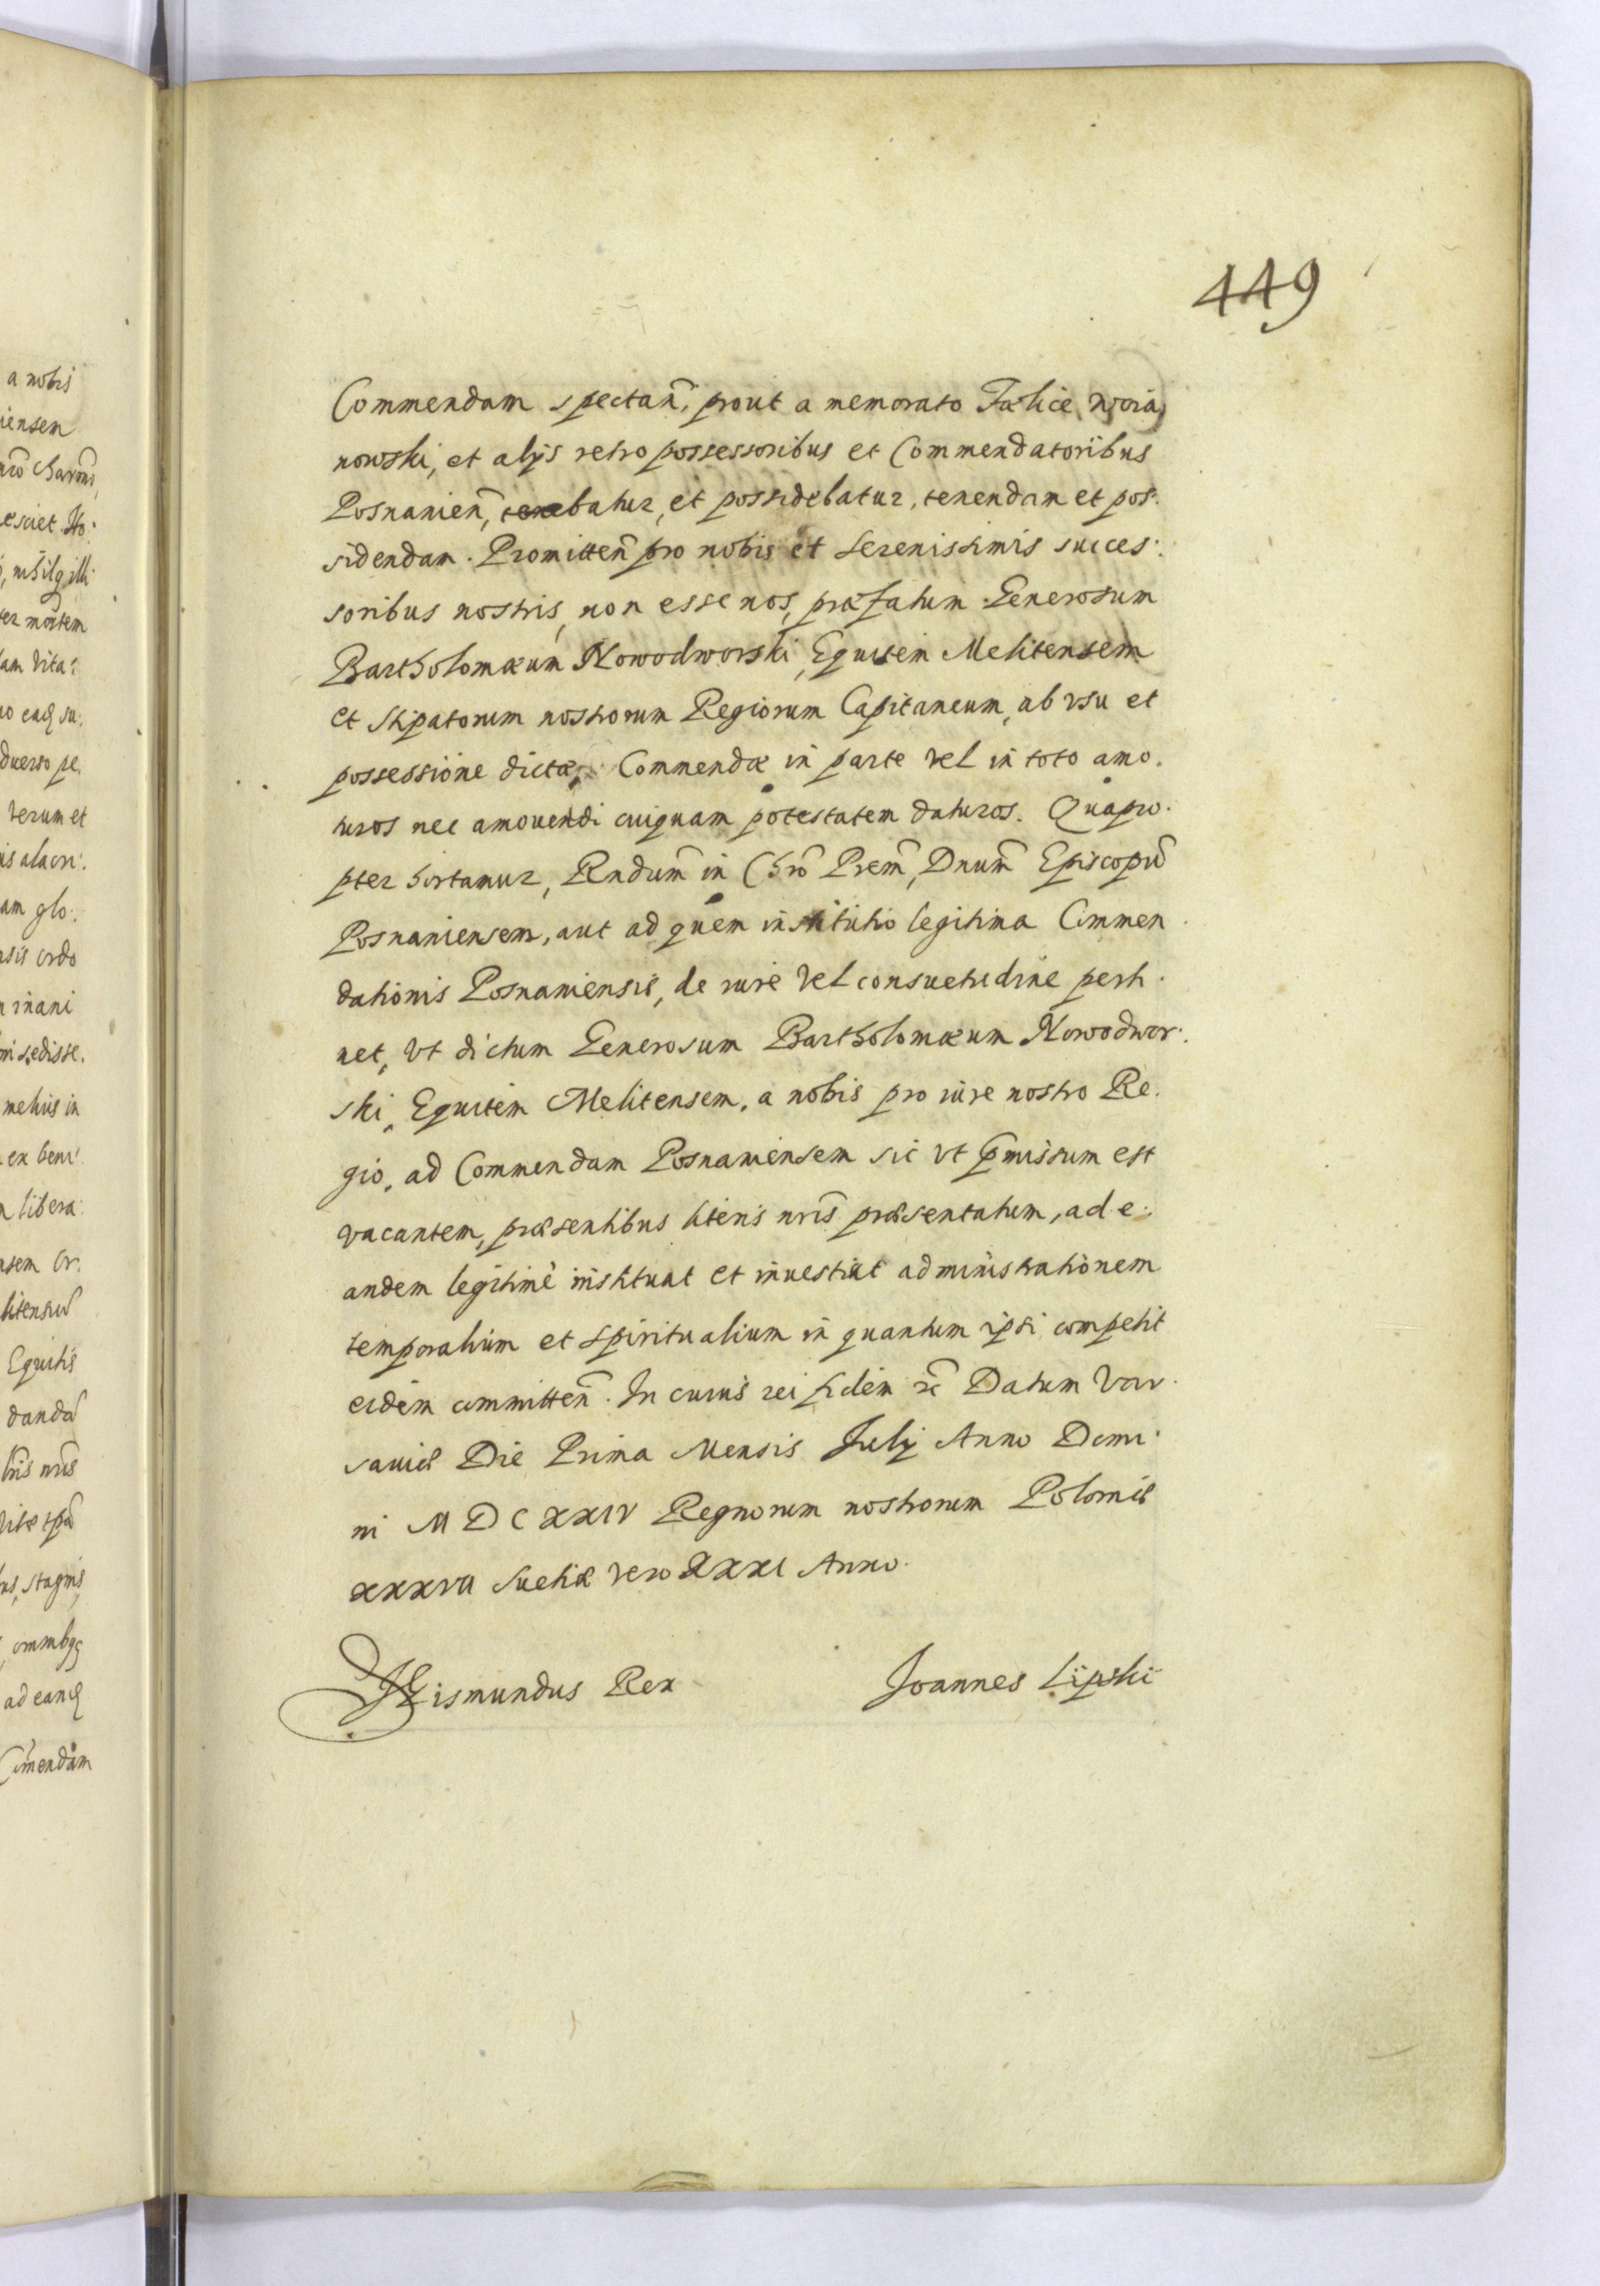 449
a nobis
iensem
esciet
mortem
am vita:
duerso pe.
verum et
is alacri:
am glo:
sis ordo
inani
sedisse.
melius in
ex beni:
libera:
Equitis
nris
stagnis,
Commendam spectan̄, prout a memorato Fælice Woia
nowski, et alijs retro possessoribus et Commendatoribus
Posnanien̄, tenebatur, et possidebatur, tenendam et pos:
sidendam. Promitten̄ pro nobis et Serenissimis succes:
soribus nostris, non esse nos, præfatum Generosum
Bartholomæum Nowodworski, Equitem Melitensem
et Stipatorum nostrorum Regiorum Capitaneum, ab vsu et
possessione dictæ Commendæ in parte vel in toto amo.
turos nec amouendi cuiquam potestatem daturos. Quapro.
pter hortamur, Rndum̄ in Chrō Prem̄, Dnum̄ Episcopū
Posnaniensem, aut ad quem institutio legitima Commen
dationis Posnaniensis, de iure vel consuetudine perti.
net, vt dictum Generosum Bartholomæum Nowodwor:
ski, Equitem Melitensem, a nobis pro iure nostro Re.
gio, ad Commendam Posnaniensem sic vt p̄missum est
vacantem, præsentibus literis nris̄ præsentatum, ad e:
andem legitimè instituat et inuestiat administrationem
temporalium et spiritualium in quantum ipsi competit
eidem committen̄. In cuius rei fidem &c̄ Datum Var.
sauiæ Die Prima Mensis Julij Anno Domi.
ni MDCXXIV Regnorum nostrorum Poloniæ
XXXVII Suetiæ vero XXXI Anno.
Sigismundus Rex
Joannes Lipski